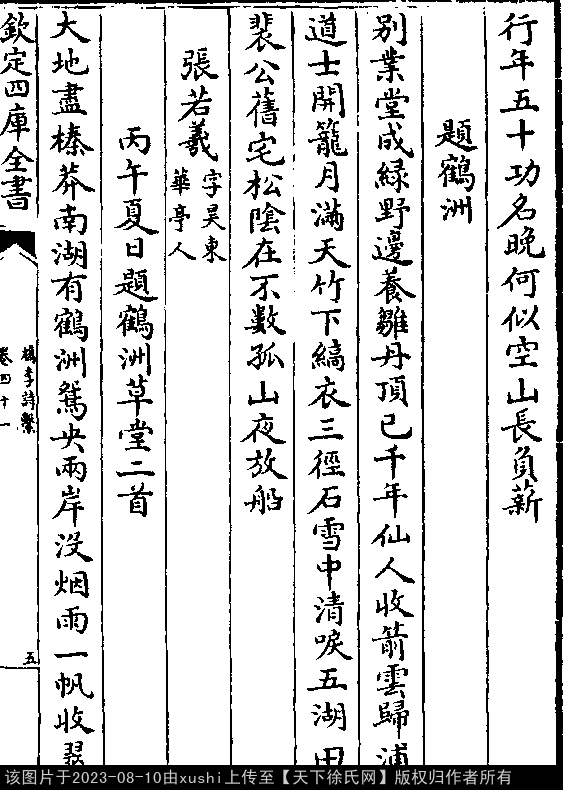 行年五十功名晚何似空山長負薪
題鶴洲
別業堂成緑野邊養雛丹頂已千年仙人收箭雲歸浦
道士開籠月滿天竹下縞衣三徑石雪中清唳五湖田
裴公舊宅松陰在不數孤山夜放船
張若羲
字昊東
華亭人
丙午夏日題鶴洲草堂二首
大地盡榛莽南湖有鶴洲鴛央兩岸没烟雨一帆收
欽定四庫全書
檇李詩繫
卷四十一
五
该图片于2023-08-10由xushi上传至【天下徐氏网】版权归作者所有